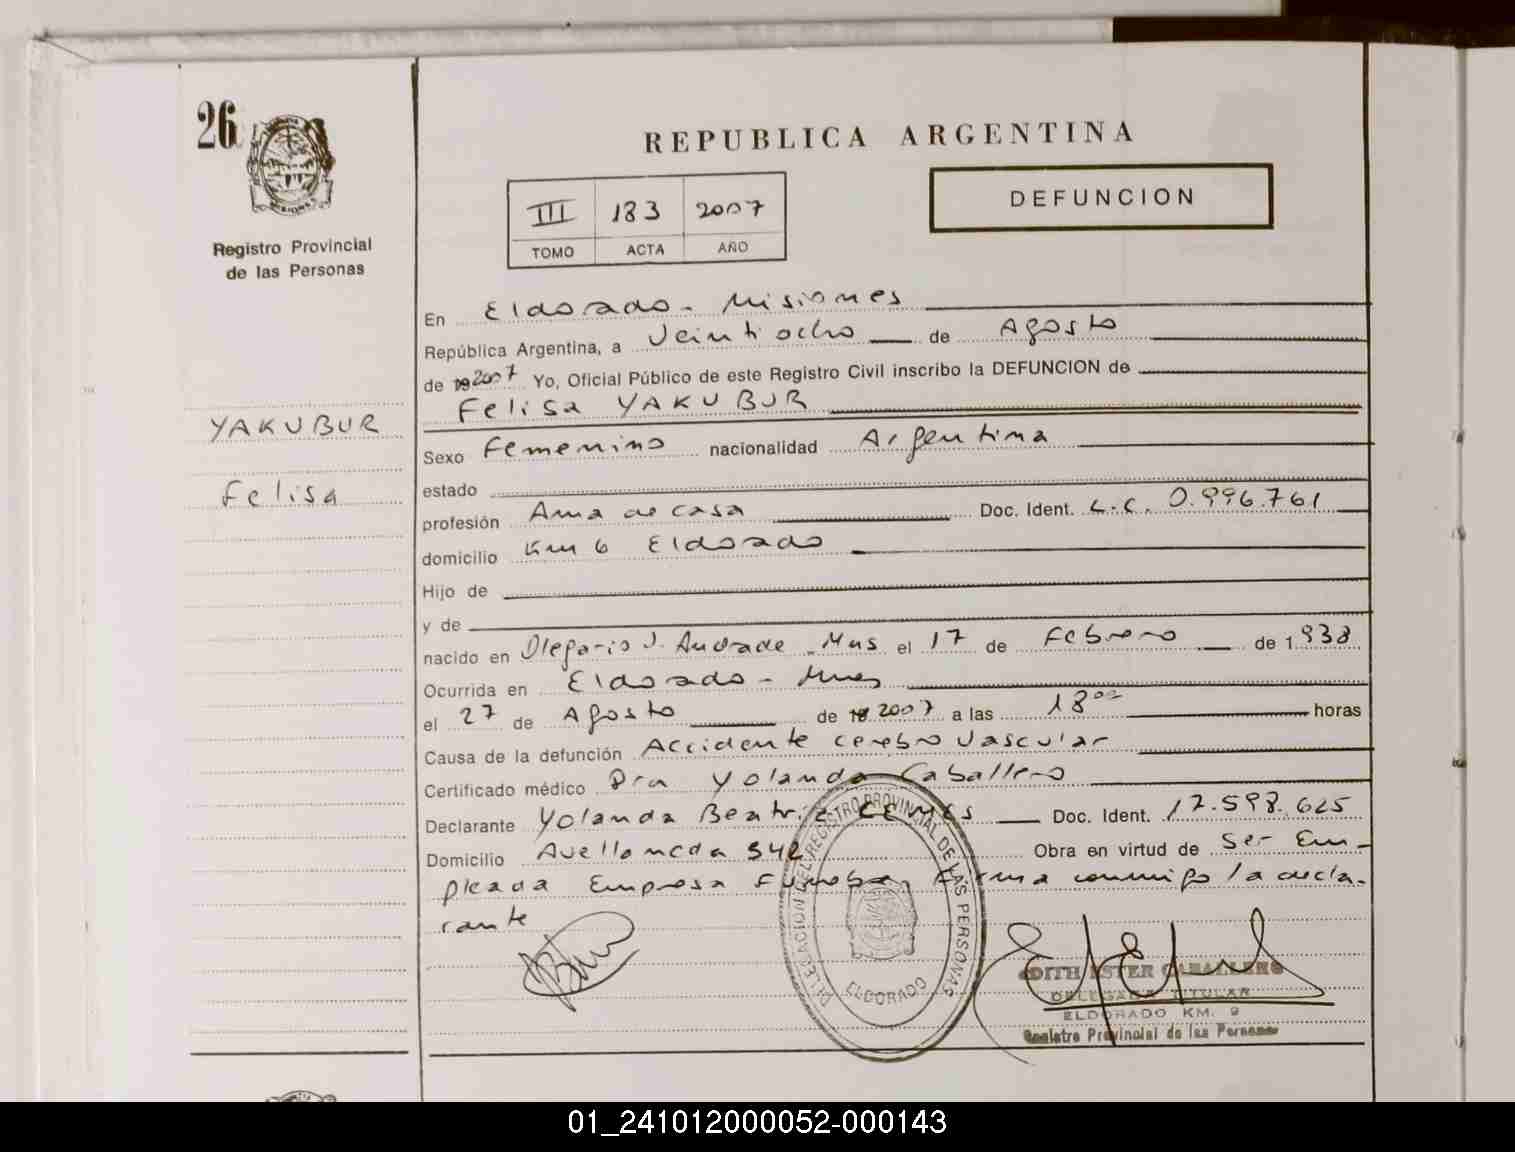 26
Registro Provincial
de las Personas
YAKUBUR
Felisa
REPUBLICA ARGENTINA
III 183 2007
TOMO ACTA AÑO
DEFUNCION
En Eldorado - Misiones
República Argentina, a Veintiocho de Agosto
de 2007 Yo, Oficial Público de este Registro Civil inscribo la DEFUNCION de
Felisa YAKUBUR
Sexo Femenino nacionalidad Argentina
estado
profesión Ama de casa Doc. Ident. L.C. 0.996.761
domicilio Km 6 Eldorado
Hijo de
y de
nacido en Olegario V. Andrade - Mns el 17 de Febrero de 1938
Ocurrida en Eldorado - Mnes
el 27 de Agosto de 2007 a las 18⁰⁰ horas
Causa de la defunción Accidente cerebro Vascular
Certificado médico Dra Yolanda Caballero
Declarante Yolanda Beatriz Doc. Ident. 17.598.625
Domicilio Avellaneda 542 Obra en virtud de Ser Em-
pleada Empresa Funebre, Firma conmigo la decla-
rante
DELEGACION DEL REGISTRO PROVINCIAL DE LAS PERSONAS
ELDORADO
EDITH ESTER CABALLERO
DELEGADA TITULAR
ELDORADO KM. 9
Registro Provincial de las Personas
01_241012000052-000143